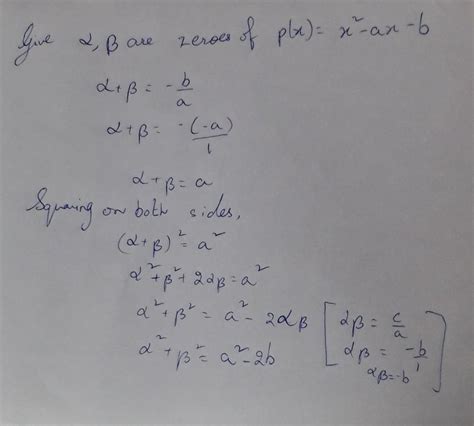 Give α, β are zeroes of p(x) = x² - ax - b
α + β = - b/a
α + β = -(-a)/1
α + β = a
Squaring on both sides,
(α + β)² = a²
α² + β² + 2αβ = a²
α² + β² = a² - 2αβ [ αβ = c/a
α² + β² = a² - 2b αβ = -b/1
αβ = -b ]